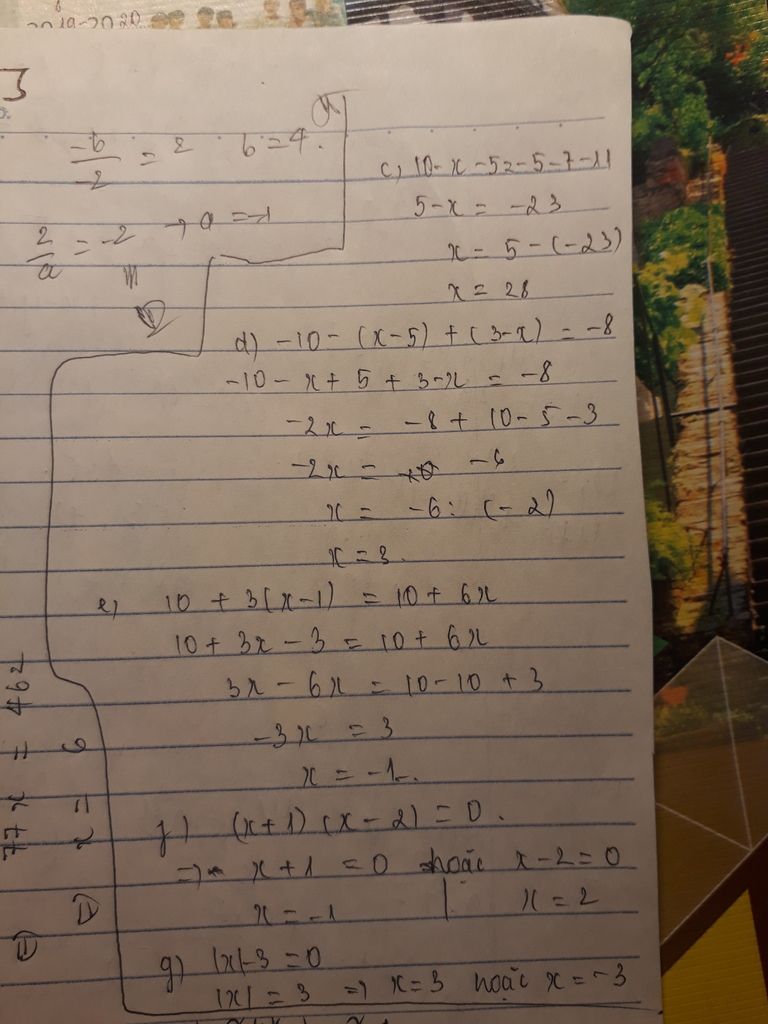 2019-2020
-b/-2 = 2   b = 4.
2/a = -2 → a = -1
c, 10-x-5=-5-7-11
5-x = -23
x = 5-(-23)
x = 28
d) -10-(x-5)+(3-x) = -8
-10-x+5+3-x = -8
-2x = -8+10-5-3
-2x = -6
x = -6: (-2)
x = 3.
e, 10+3(x-1) = 10+6x
10+3x-3 = 10+6x
3x-6x = 10-10+3
-3x = 3
x = -1.
f) (x+1)(x-2) = 0.
=> x+1 = 0 hoặc x-2=0
x = -1 | x = 2
g) |x|-3=0
|x| = 3 => x=3 hoặc x=-3
77x = 462
x = 6